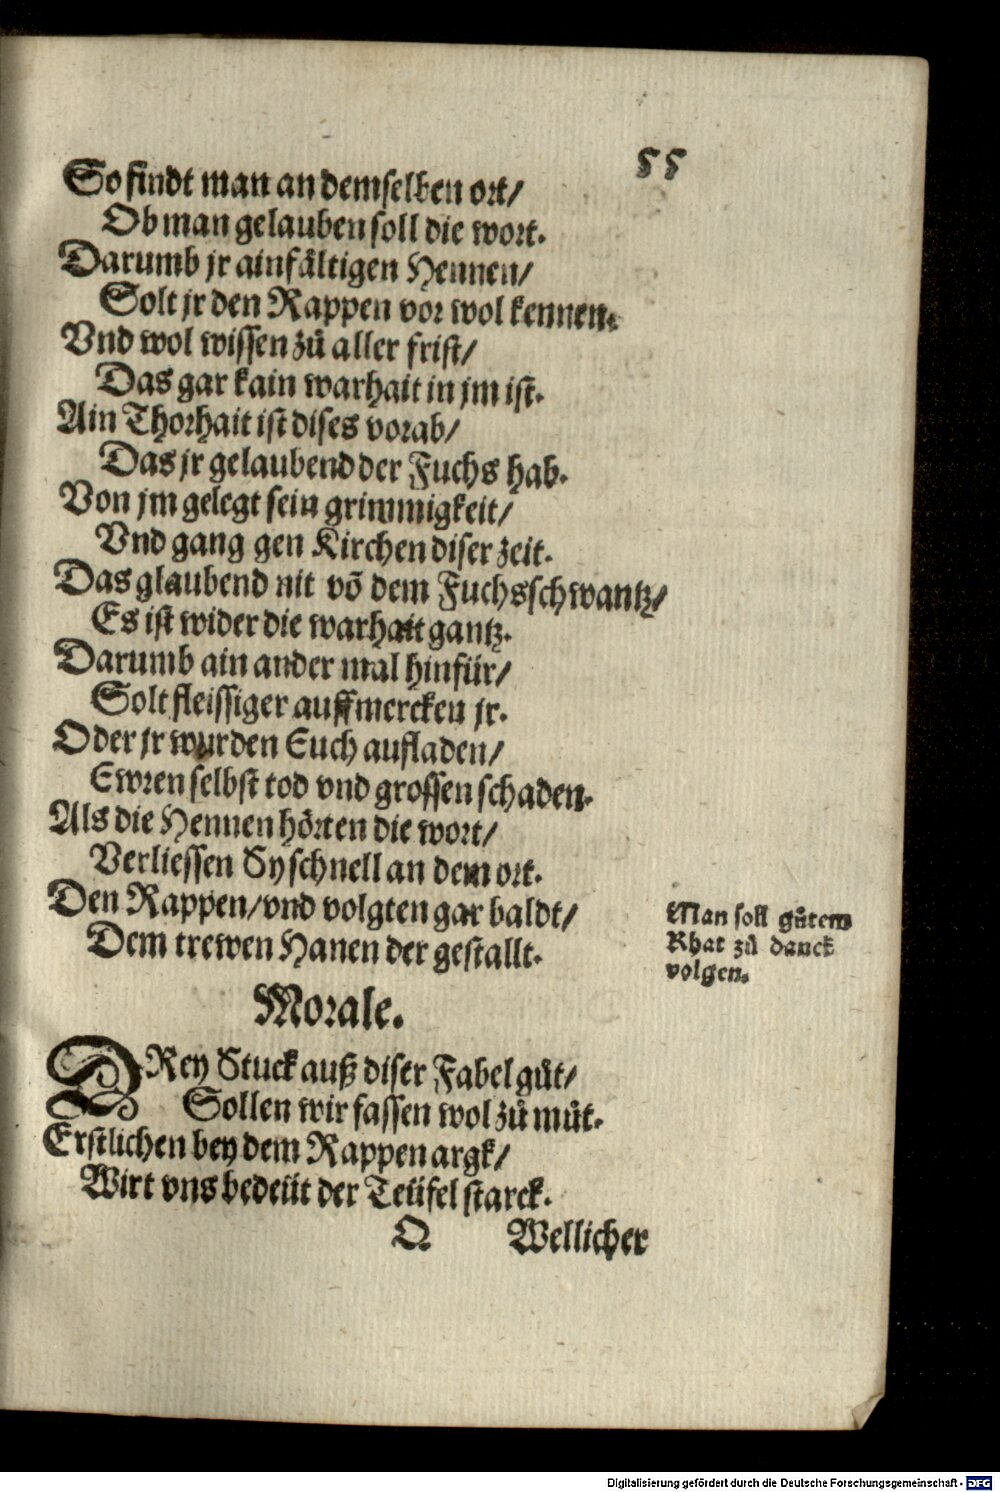 55
So findt man an demselben ort/
Ob man gelauben soll die wort.
Darumb jr ainfältigen Hennen/
Solt jr den Rappen vor wol kennen.
Vnd wol wissen zů aller frist/
Das gar kain warhait in jm ist.
Ain Thorhait ist dises vorab/
Das jr gelaubend der Fuchs hab.
Von jm gelegt sein grimmigkeit/
Vnd gang gen Kirchen diser zeit.
Das glaubend nit võ dem Fuchsschwantz/
Es ist wider die warhait gantz.
Darumb ain ander mal hinfür/
Solt fleissiger auffmercken jr.
Oder jr wurden Euch aufladen/
Ewren selbst tod vnd grossen schaden.
Als die Hennen hörten die wort/
Verliessen Sy schnell an dem ort.
Den Rappen/vnd volgten gar baldt/
Dem trewen Hanen der gestallt.
Man soll gůtem
Rhat zů danck
volgen.
Morale.
DRey Stuck auß diser Fabel gůt/
Sollen wir fassen wol zů můt.
Erstlichen bey dem Rappen argk/
Wirt vns bedeüt der Teüfel starck.
Q Wellicher
Digitalisierung gefördert durch die Deutsche Forschungsgemeinschaft - DFG